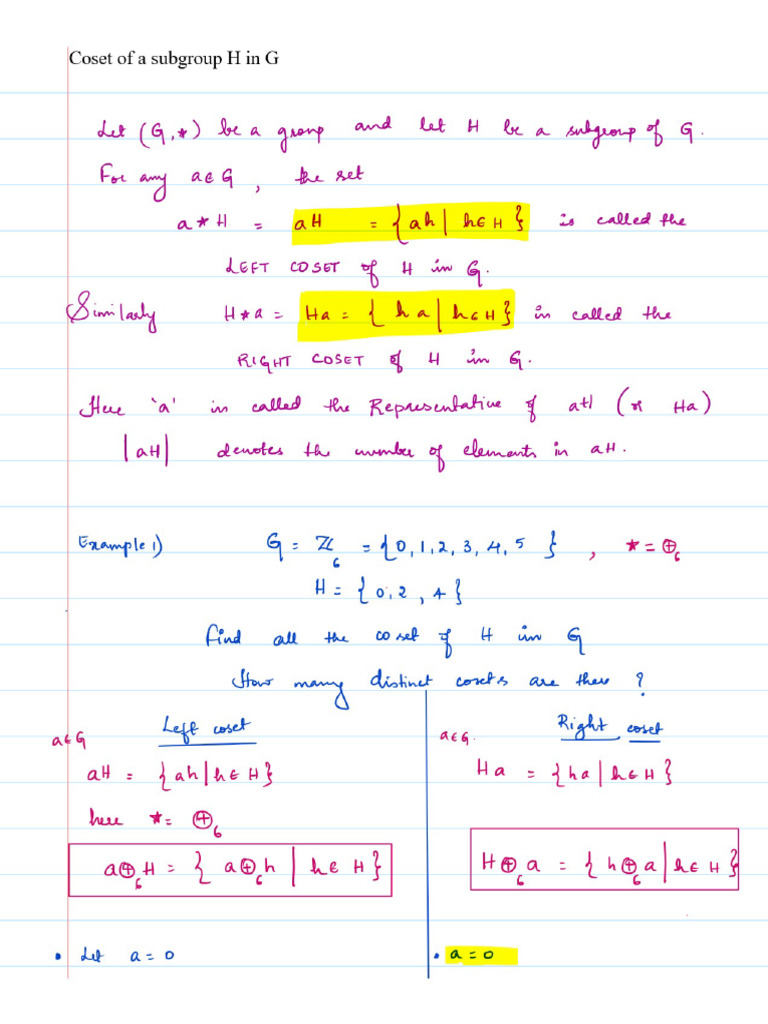 Coset of a subgroup H in G
Let (G,*) be a group and let H be a subgroup of G.
For any a∈G, the set
a*H = aH = {ah | h∈H} is called the
LEFT COSET of H in G.
Similarly H*a = Ha = {ha | h∈H} is called the
RIGHT COSET of H in G.
Here 'a' is called the Representative of aH (or Ha)
|aH| denotes the number of elements in aH.
Example 1) G = ℤ₆ = {0, 1, 2, 3, 4, 5}, * = ⊕₆
H = {0, 2, 4}
Find all the coset of H in G
How many distinct cosets are there?
a∈G Left coset
aH = {ah | h∈H}
here * = ⊕₆
a⊕₆H = {a⊕₆h | h∈H}
• Let a = 0
Right coset
a∈G.
Ha = {ha | h∈H}
H⊕₆a = {h⊕₆a | h∈H}
• a = 0